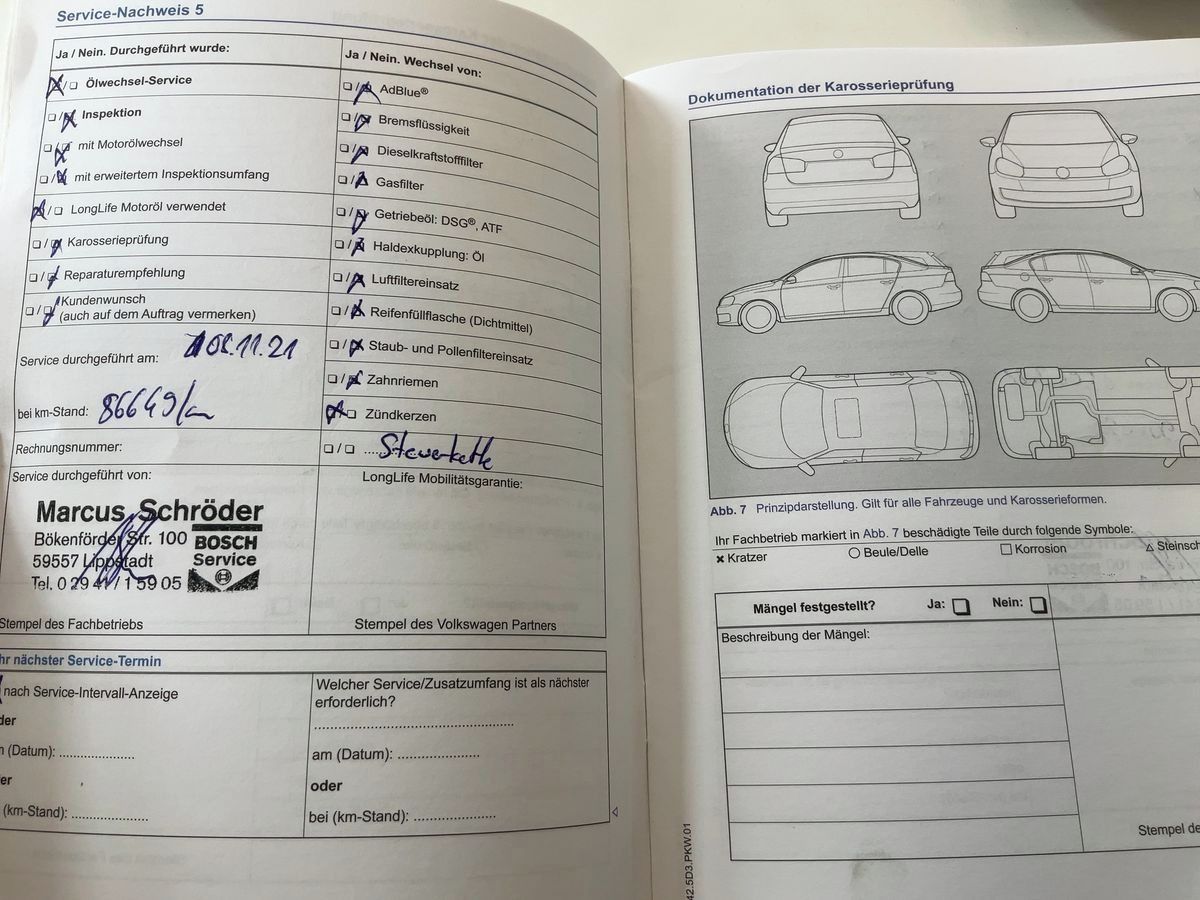 Service-Nachweis 5
Ja / Nein. Durchgeführt wurde:
Ölwechsel-Service
Inspektion
mit Motorölwechsel
mit erweitertem Inspektionsumfang
LongLife Motoröl verwendet
Karosserieprüfung
Reparaturempfehlung
Kundenwunsch
(auch auf dem Auftrag vermerken)
Service durchgeführt am: 08.11.21
bei km-Stand: 86649 km
Rechnungsnummer:
Service durchgeführt von:
Marcus Schröder
Bökenförder Str. 100
59557 Lippstadt
Tel. 0 29 41 / 1 59 05
BOSCH
Service
Stempel des Fachbetriebs
Ja / Nein. Wechsel von:
AdBlue®
Bremsflüssigkeit
Dieselkraftstofffilter
Gasfilter
Getriebeöl: DSG®, ATF
Haldexkupplung: Öl
Luftfiltereinsatz
Reifenfüllflasche (Dichtmittel)
Staub- und Pollenfiltereinsatz
Zahnriemen
Zündkerzen
Steuerkette
LongLife Mobilitätsgarantie:
Stempel des Volkswagen Partners
hr nächster Service-Termin
nach Service-Intervall-Anzeige
der
m (Datum): ......................
er
(km-Stand): ......................
Welcher Service/Zusatzumfang ist als nächster
erforderlich?
am (Datum): ......................
oder
bei (km-Stand): ......................
Dokumentation der Karosserieprüfung
Abb. 7 Prinzipdarstellung. Gilt für alle Fahrzeuge und Karosserieformen.
Ihr Fachbetrieb markiert in Abb. 7 beschädigte Teile durch folgende Symbole:
Kratzer
Beule/Delle
Korrosion
Steinsch
Mängel festgestellt? Ja: Nein:
Beschreibung der Mängel:
Stempel de
42.5D3.PKW.01